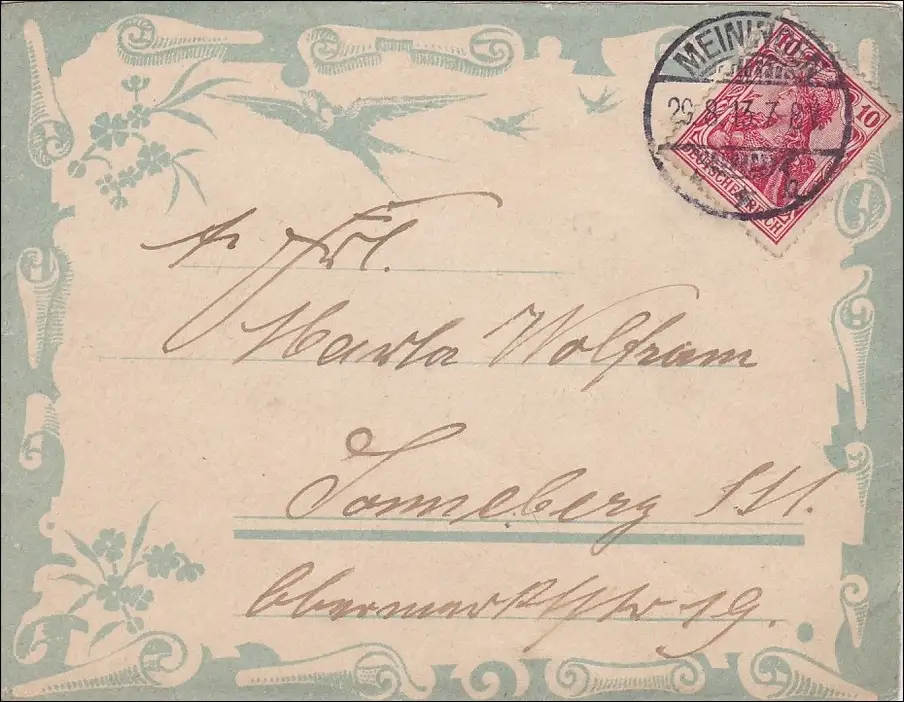 MEININGEN
29.8.13.7-8V.
b
10
10
DEUTSCHES REICH
An Frl.
Marta Wolfram
Sonneberg S/M.
Obermarktstr 19.